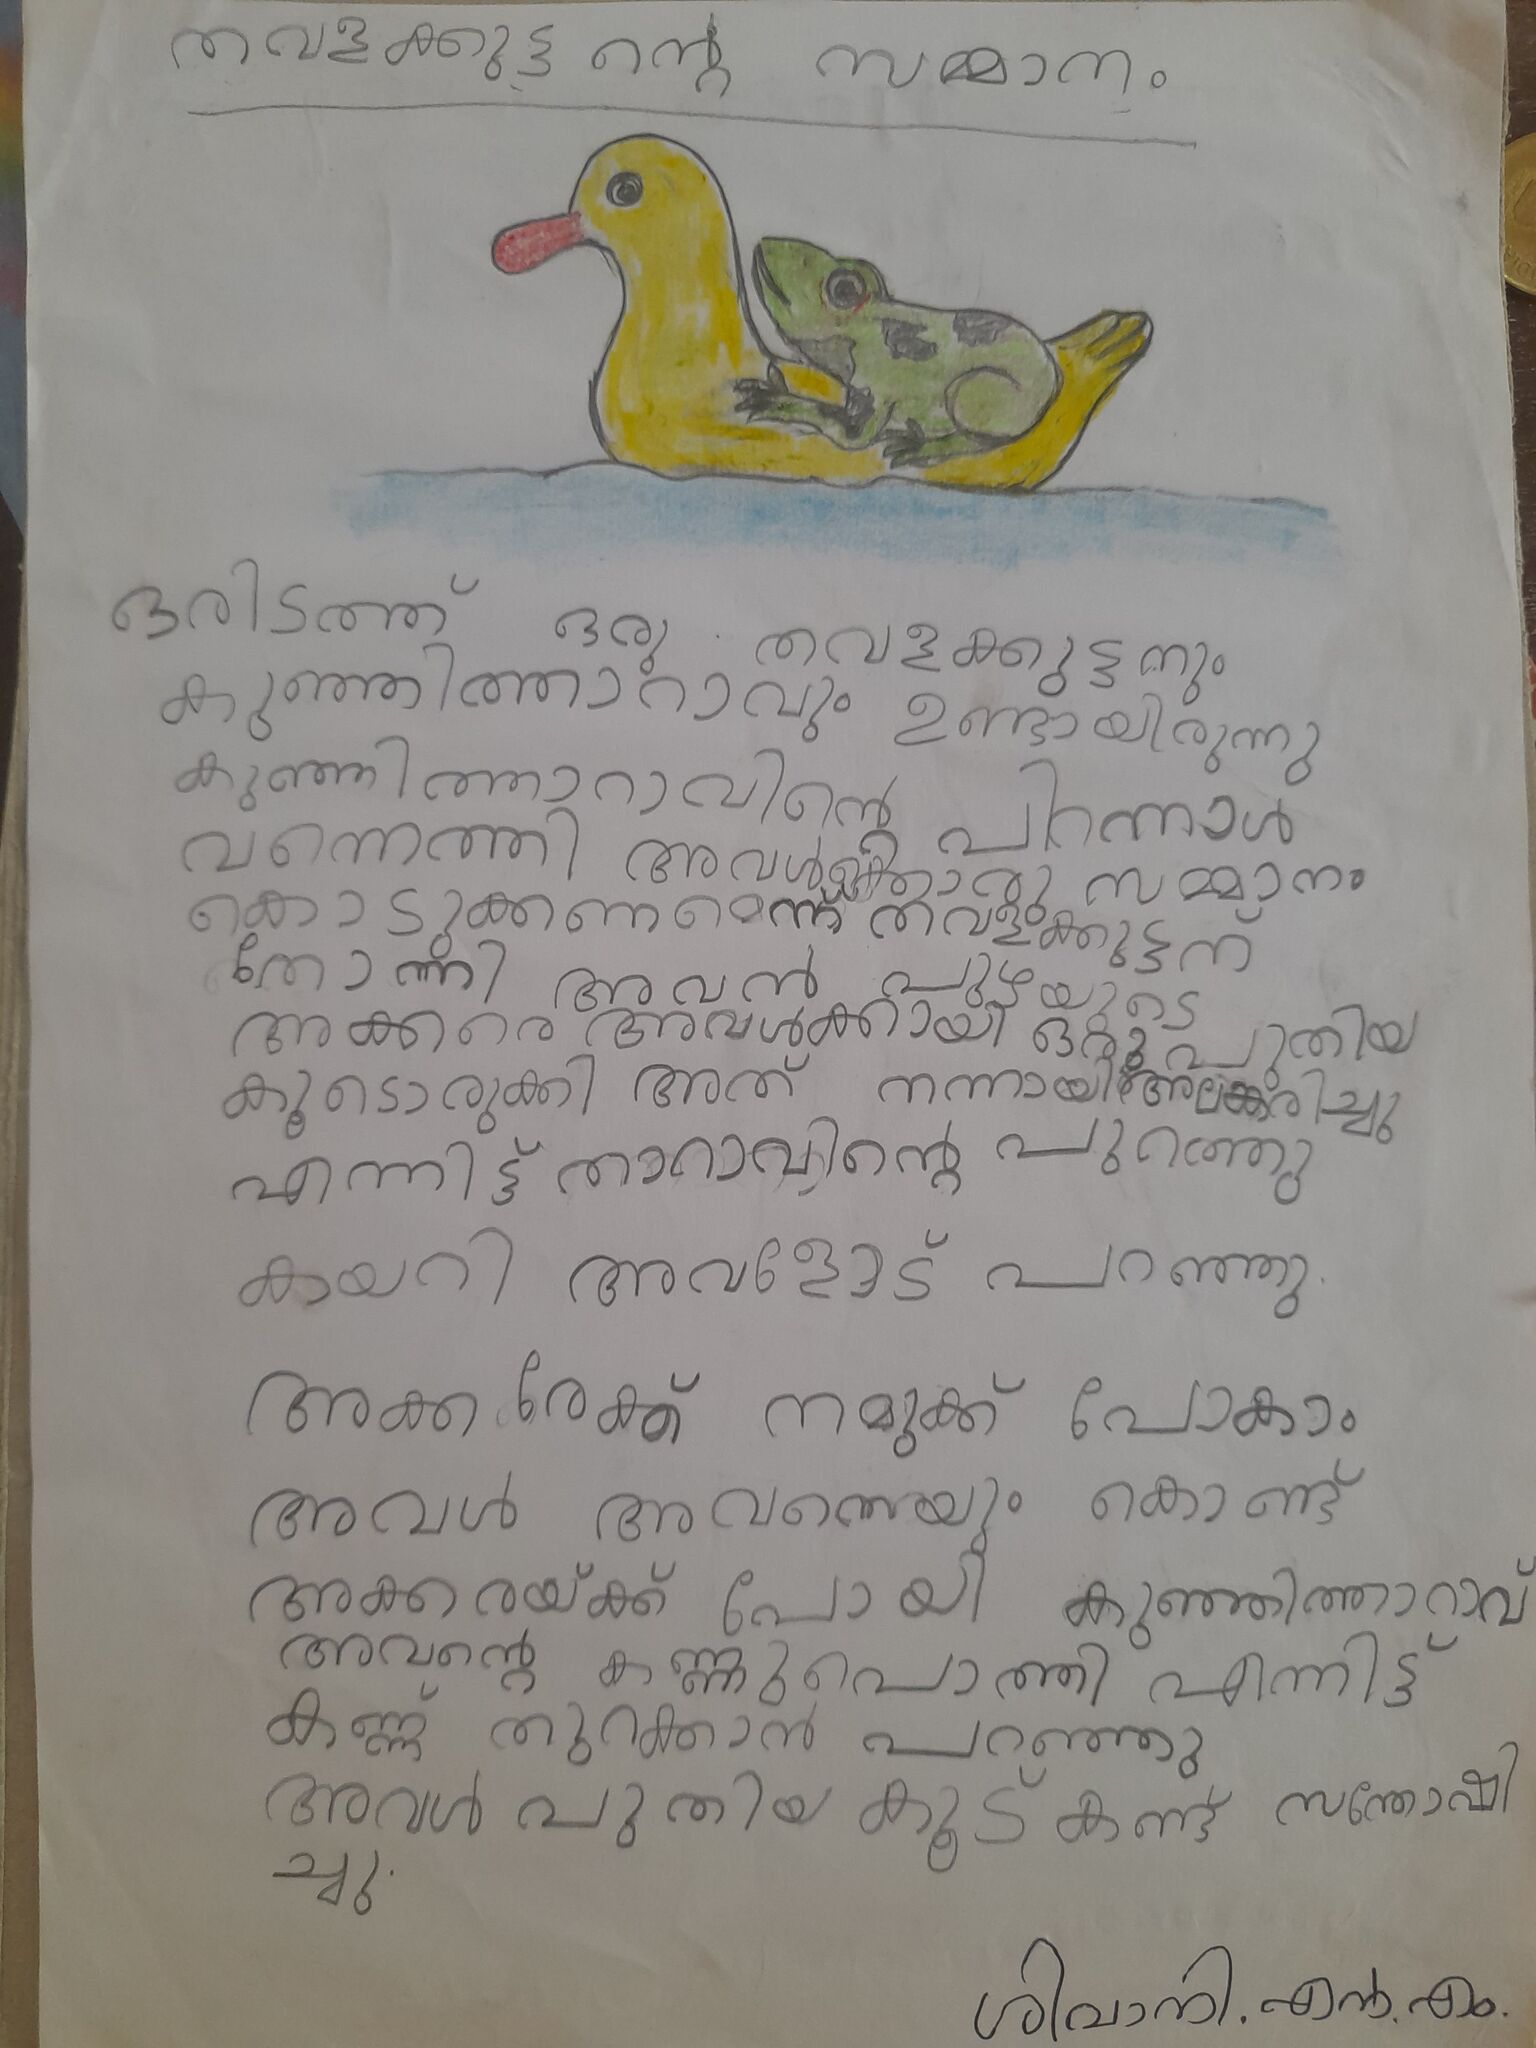 തവളക്കുട്ടന്റെ സമ്മാനം
ഒരിടത്ത് ഒരു തവളക്കുട്ടനും
കുഞ്ഞിത്താറാവും ഉണ്ടായിരുന്നു
കുഞ്ഞിത്താറാവിന്റെ പിറന്നാൾ
വന്നെത്തി അവൾക്കൊരു സമ്മാനം
കൊടുക്കണമെന്ന് തവളക്കുട്ടന്
തോന്നി അവൻ പുഴയുടെ
അക്കരെ അവൾക്കായി ഒരു പുതിയ
കൂടൊരുക്കി അത് നന്നായി അലങ്കരിച്ചു
എന്നിട്ട് താറാവിന്റെ പുറത്തു
കായറി അവളോട് പറഞ്ഞു.
അക്കരേക്ക് നമുക്ക് പോകാം
അവൾ അവനെയും കൊണ്ട്
അക്കരയ്ക്ക് പോയി കുഞ്ഞിത്താറാവ്
അവന്റെ കണ്ണുപൊത്തി എന്നിട്ട്
കണ്ണ് തുറക്കാൻ പറഞ്ഞു
അവൾ പുതിയ കൂട് കണ്ട് സന്തോഷി
ച്ചു.
ശിവാനി. എൻ. എം.